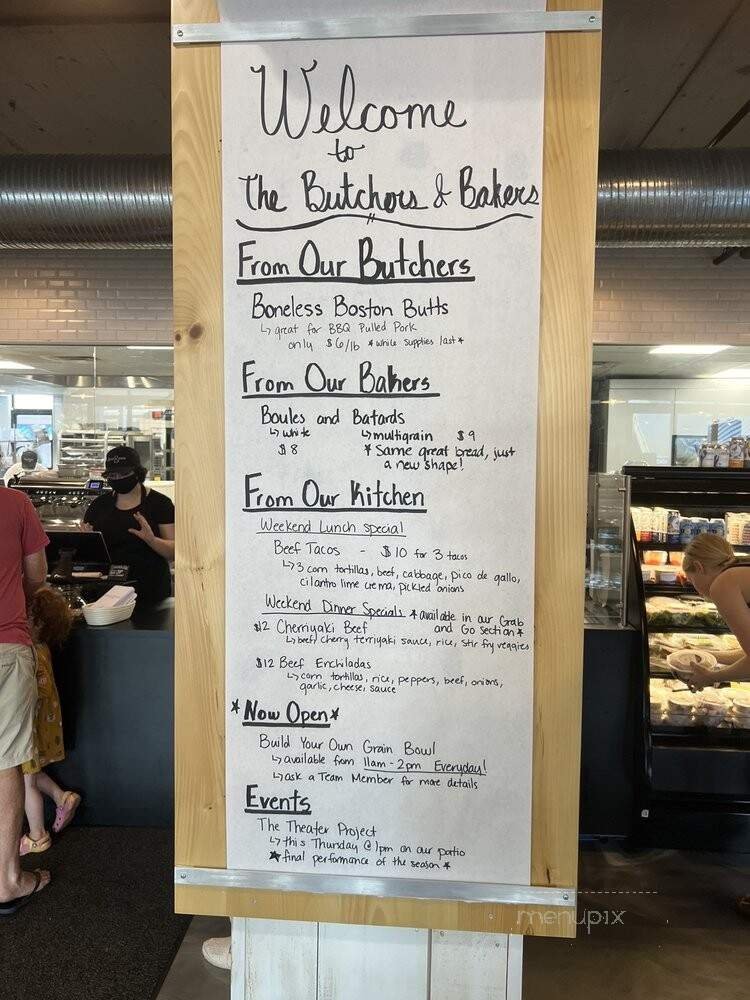 Welcome
to
The Butchers & Bakers
From Our Butchers
Boneless Boston Butts
↳ great for BBQ Pulled Pork
only $6/lb *while supplies last*
From Our Bakers
Boules and Batards
↳ white ↳ multigrain $9
$8 * Same great bread, just
a new shape!
From Our Kitchen
Weekend Lunch Special
Beef Tacos - $10 for 3 tacos
↳ 3 corn tortillas, beef, cabbage, pico de gallo,
cilantro lime crema, pickled onions
Weekend Dinner Specials *available in our Grab
and Go section*
$12 Cherriyaki Beef
↳ beef, cherry terriyaki sauce, rice, stir fry veggies
$12 Beef Enchiladas
↳ corn tortillas, rice, peppers, beef, onions,
garlic, cheese, sauce
*Now Open*
Build Your Own Grain Bowl
↳ available from 11am-2pm Everyday!
↳ ask a Team Member for more details
Events
The Theater Project
↳ this Thursday @ 1pm on our patio
★ final performance of the season *
menupix